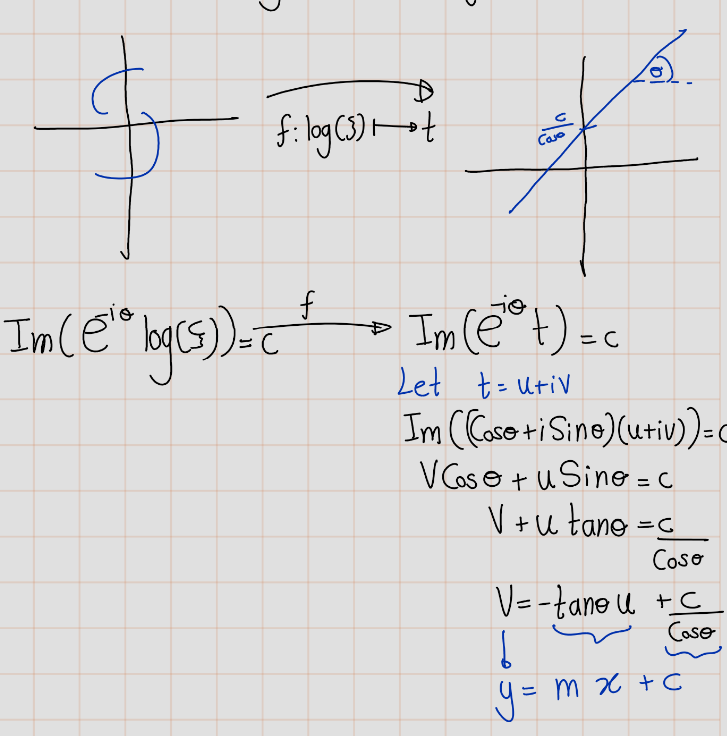 θ
c/Cosθ
f: log(ξ) ↦ t
Im(e^-iθ log(ξ)) = c
f
Im(e^-iθ t) = c
Let t = u+iv
Im((Cosθ+i Sinθ)(u+iv)) = c
V Cosθ + u Sinθ = c
V + u tanθ = c/Cosθ
V = -tanθ u + c/Cosθ
y = m x + c